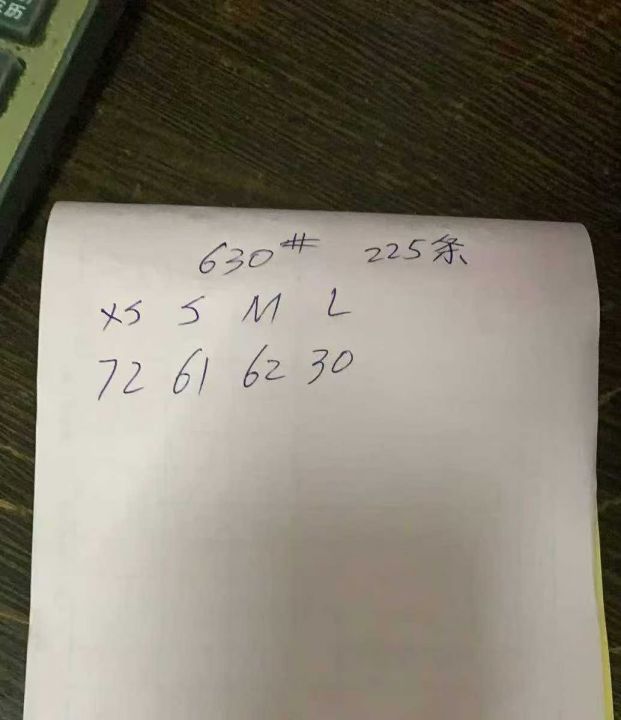 630# 225条
XS S M L
72 61 62 30